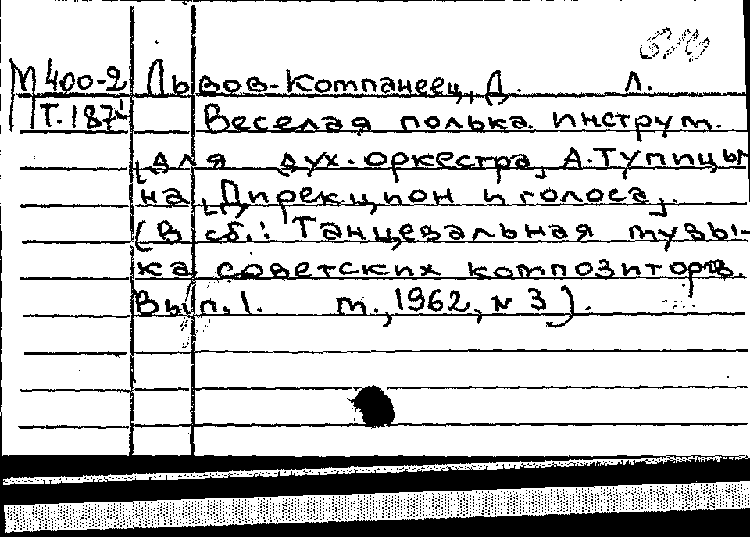 М400-2 Львов-Компанеец, Д. Л.
Т.187¹ Веселая полька. Инструм.
для дух. оркестра, А. Тупицы
на, Дирекцион и голоса,.
(В сб.: Танцевальная музы-
ка советских композиторов.
Вып. 1. М., 1962, № 3).